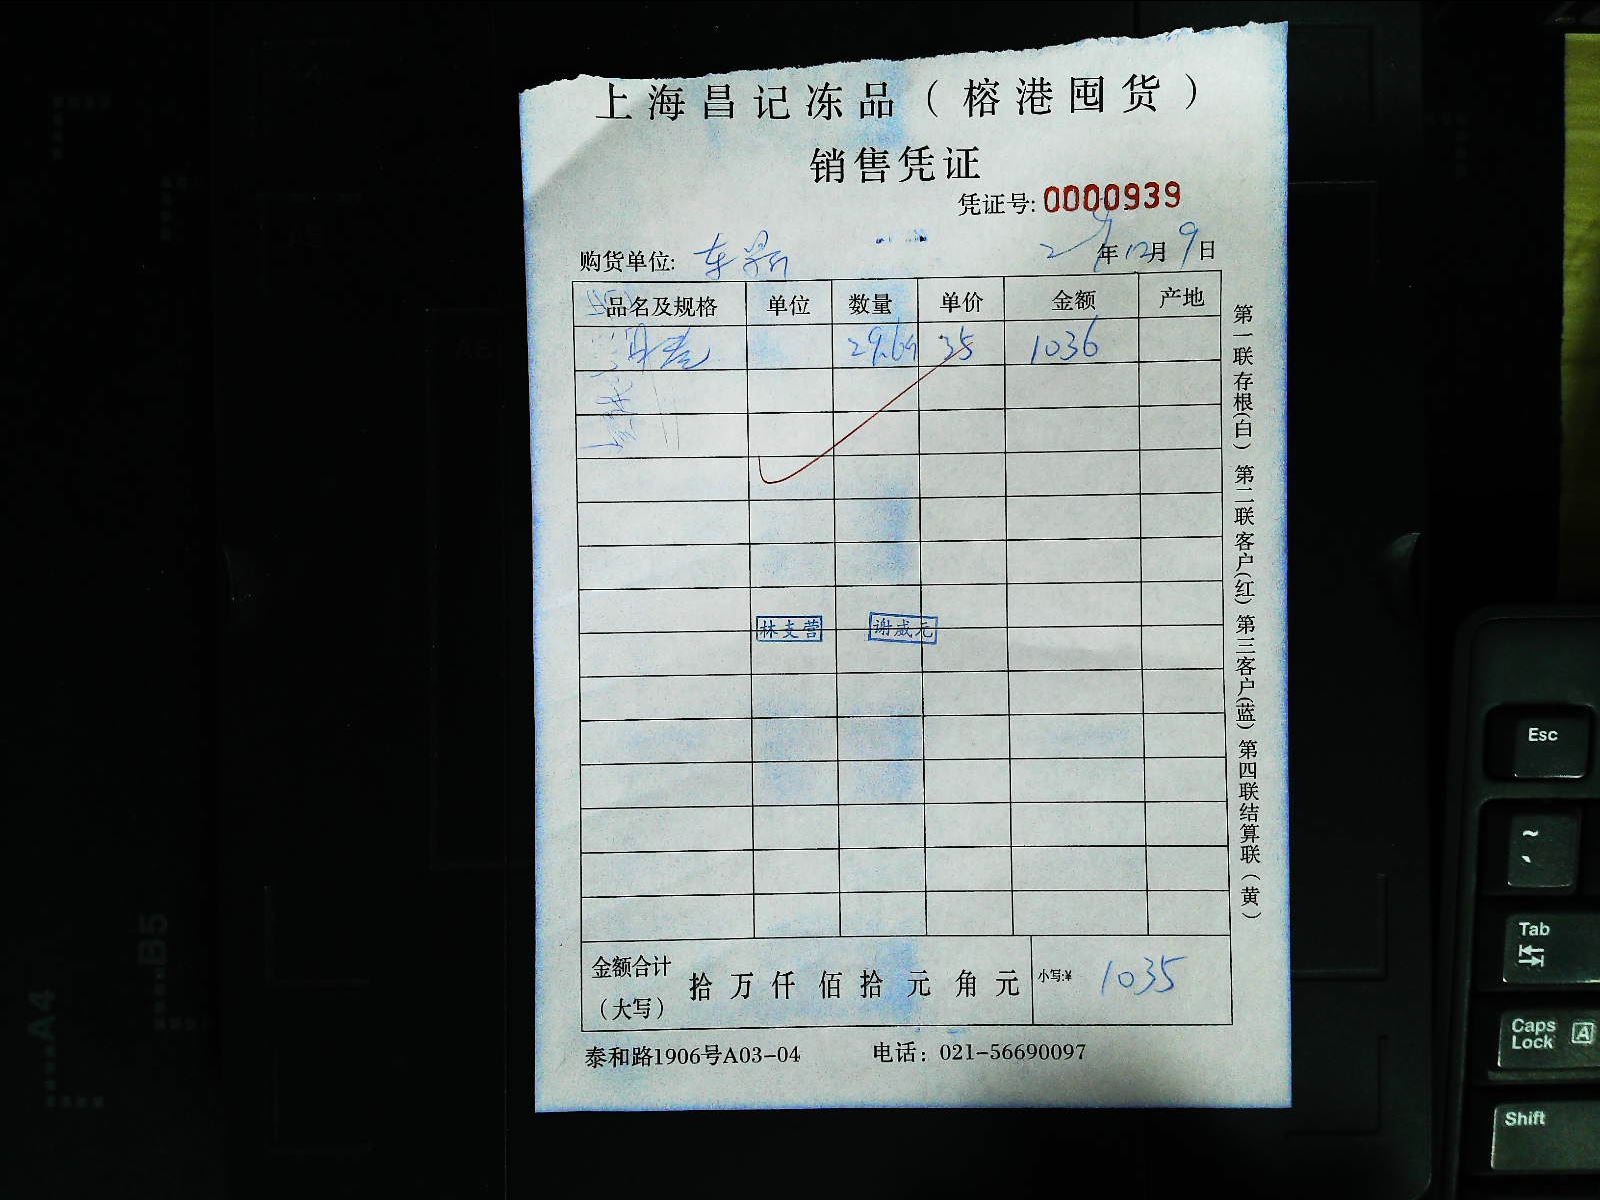 上海昌记冻品（榕港囤货）
销售凭证
凭证号: 0000939
购货单位: 年12月9日
品名及规格 单位 数量 单价 金额 产地
29.6 35 1036
林支营 谢威元
金额合计（大写） 拾 万 仟 佰 拾 元 角 元 小写:¥ 1035
泰和路1906号A03-04 电话：021-56690097
第一联存根(白) 第二联客户(红) 第三客户(蓝) 第四联结算联（黄）
A4
B5
Esc
~
Tab
Caps Lock A
Shift